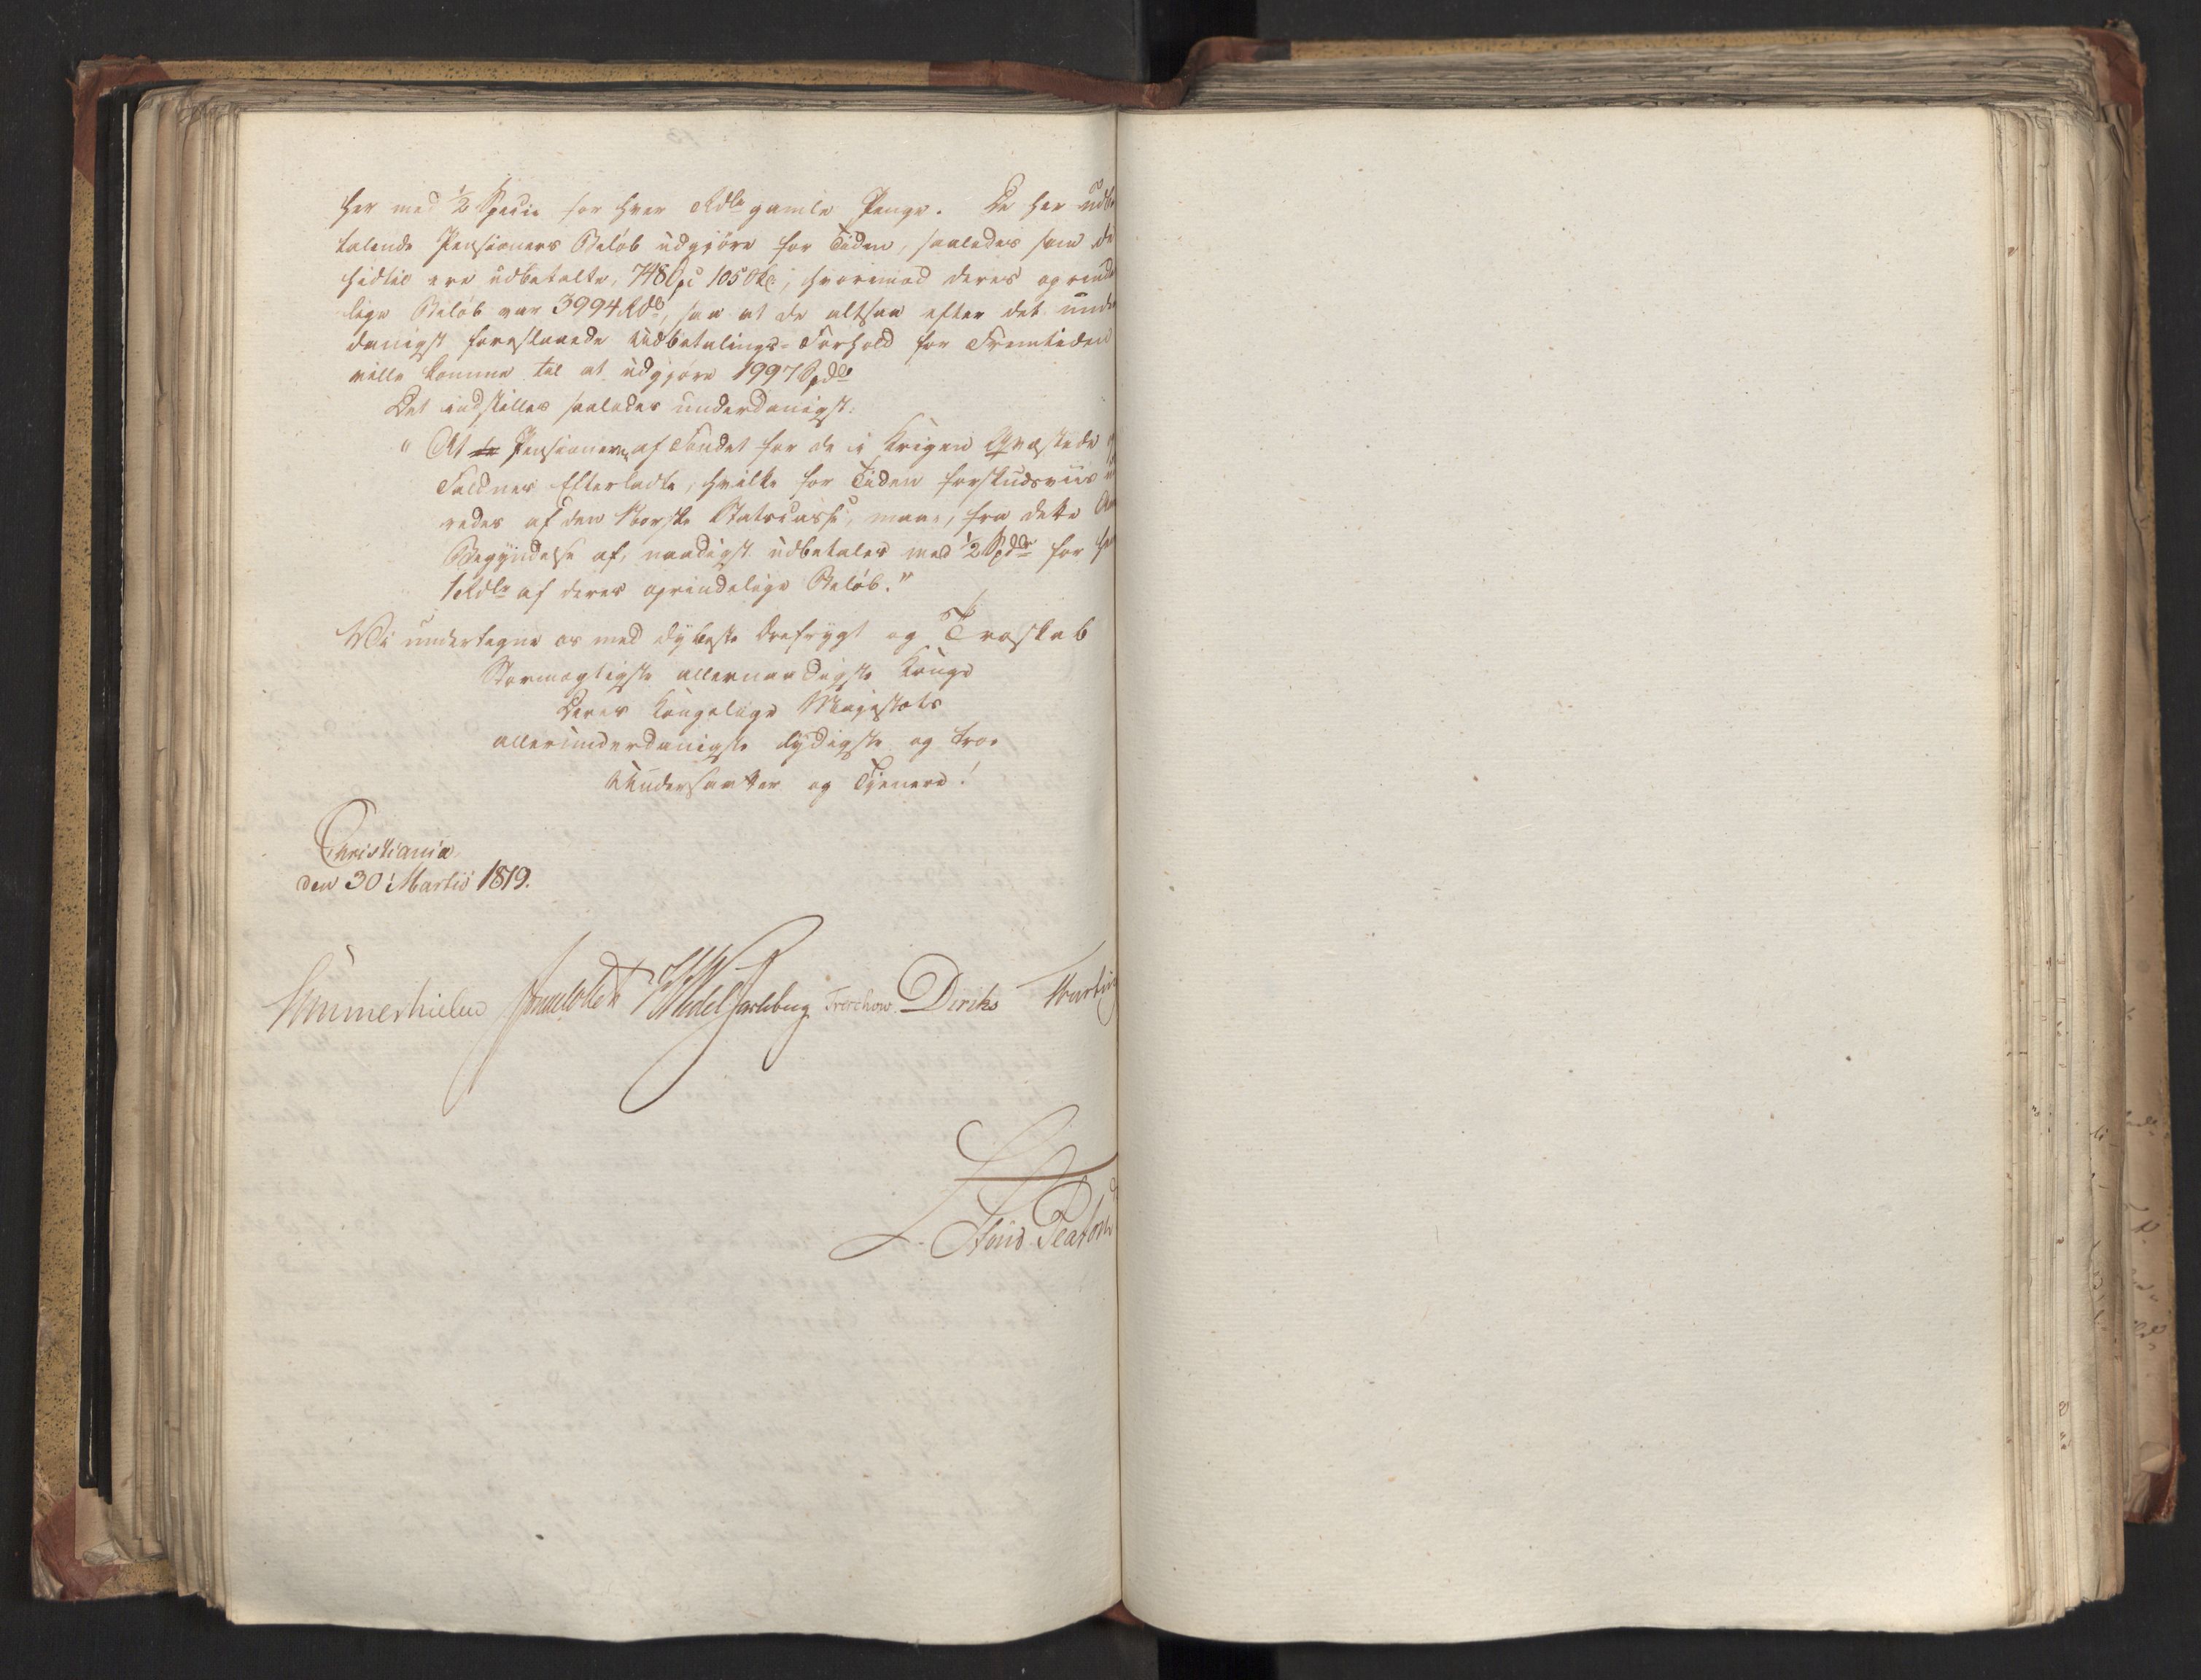 her med ½ Specie for hver Rdlr gamle Penge. De her udbe
talende Pensioners Beløb udgjøre for Tiden, saaledes som de
hidtil ere udbetalte, 748 Spd 105 ß, hvorimod deres oprinde
lige Beløb var 3994 Rdlr, saa at de altsaa efter det under
danigst foreslaaede Udbetalings-Forhold for Fremtiden
ville komme til at udgjøre 1997 Spdlr
Det indstilles saaledes underdanigst:
"At Pensionerne af Fondet for de i Krigen Qvæstede
Faldnes Efterladte, hvilke for Tiden forskudsviis
redes af den Norske Statscasse, maae, fra dette Aa
Begyndelse af, naadigst udbetales med ½ Spdlr for hv
1 Rdlr af deres oprindelige Beløb."
Vi undertegne os med dybeste Ærefrygt og Troskab
Stormægtigste allernaadigste Konge
Deres Kongelige Majestæts
allerunderdanigste lydigste og troe
Undersaatter og Tjenere!
Christiania
den 30 Martii 1819.
Sommerhielm HWedel Jarlsberg Treschow Diriks Motzfeldt